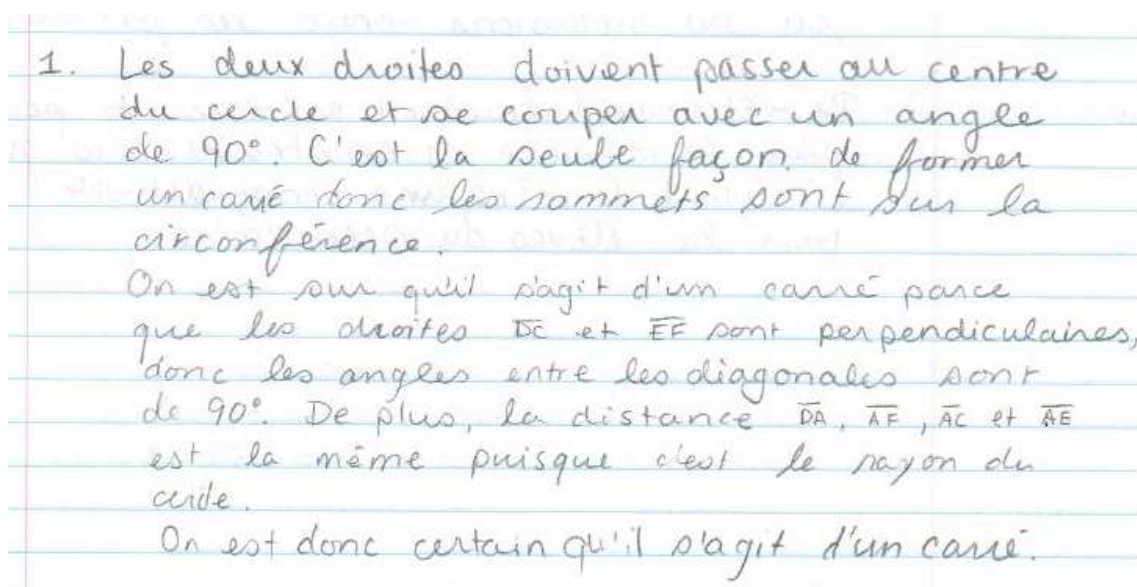 1. Les deux droites doivent passer au centre
du cercle et se couper avec un angle
de 90°. C'est la seule façon de former
un carré donc les sommets sont sur la
circonférence.
On est sur qu'il s'agit d'un carré parce
que les droites D̅C̅ et E̅F̅ sont perpendiculaires,
donc les angles entre les diagonales sont
de 90°. De plus, la distance D̅A̅, A̅F̅, A̅C̅ et A̅E̅
est la même puisque c'est le rayon du
cercle.
On est donc certain qu'il s'agit d'un carré.